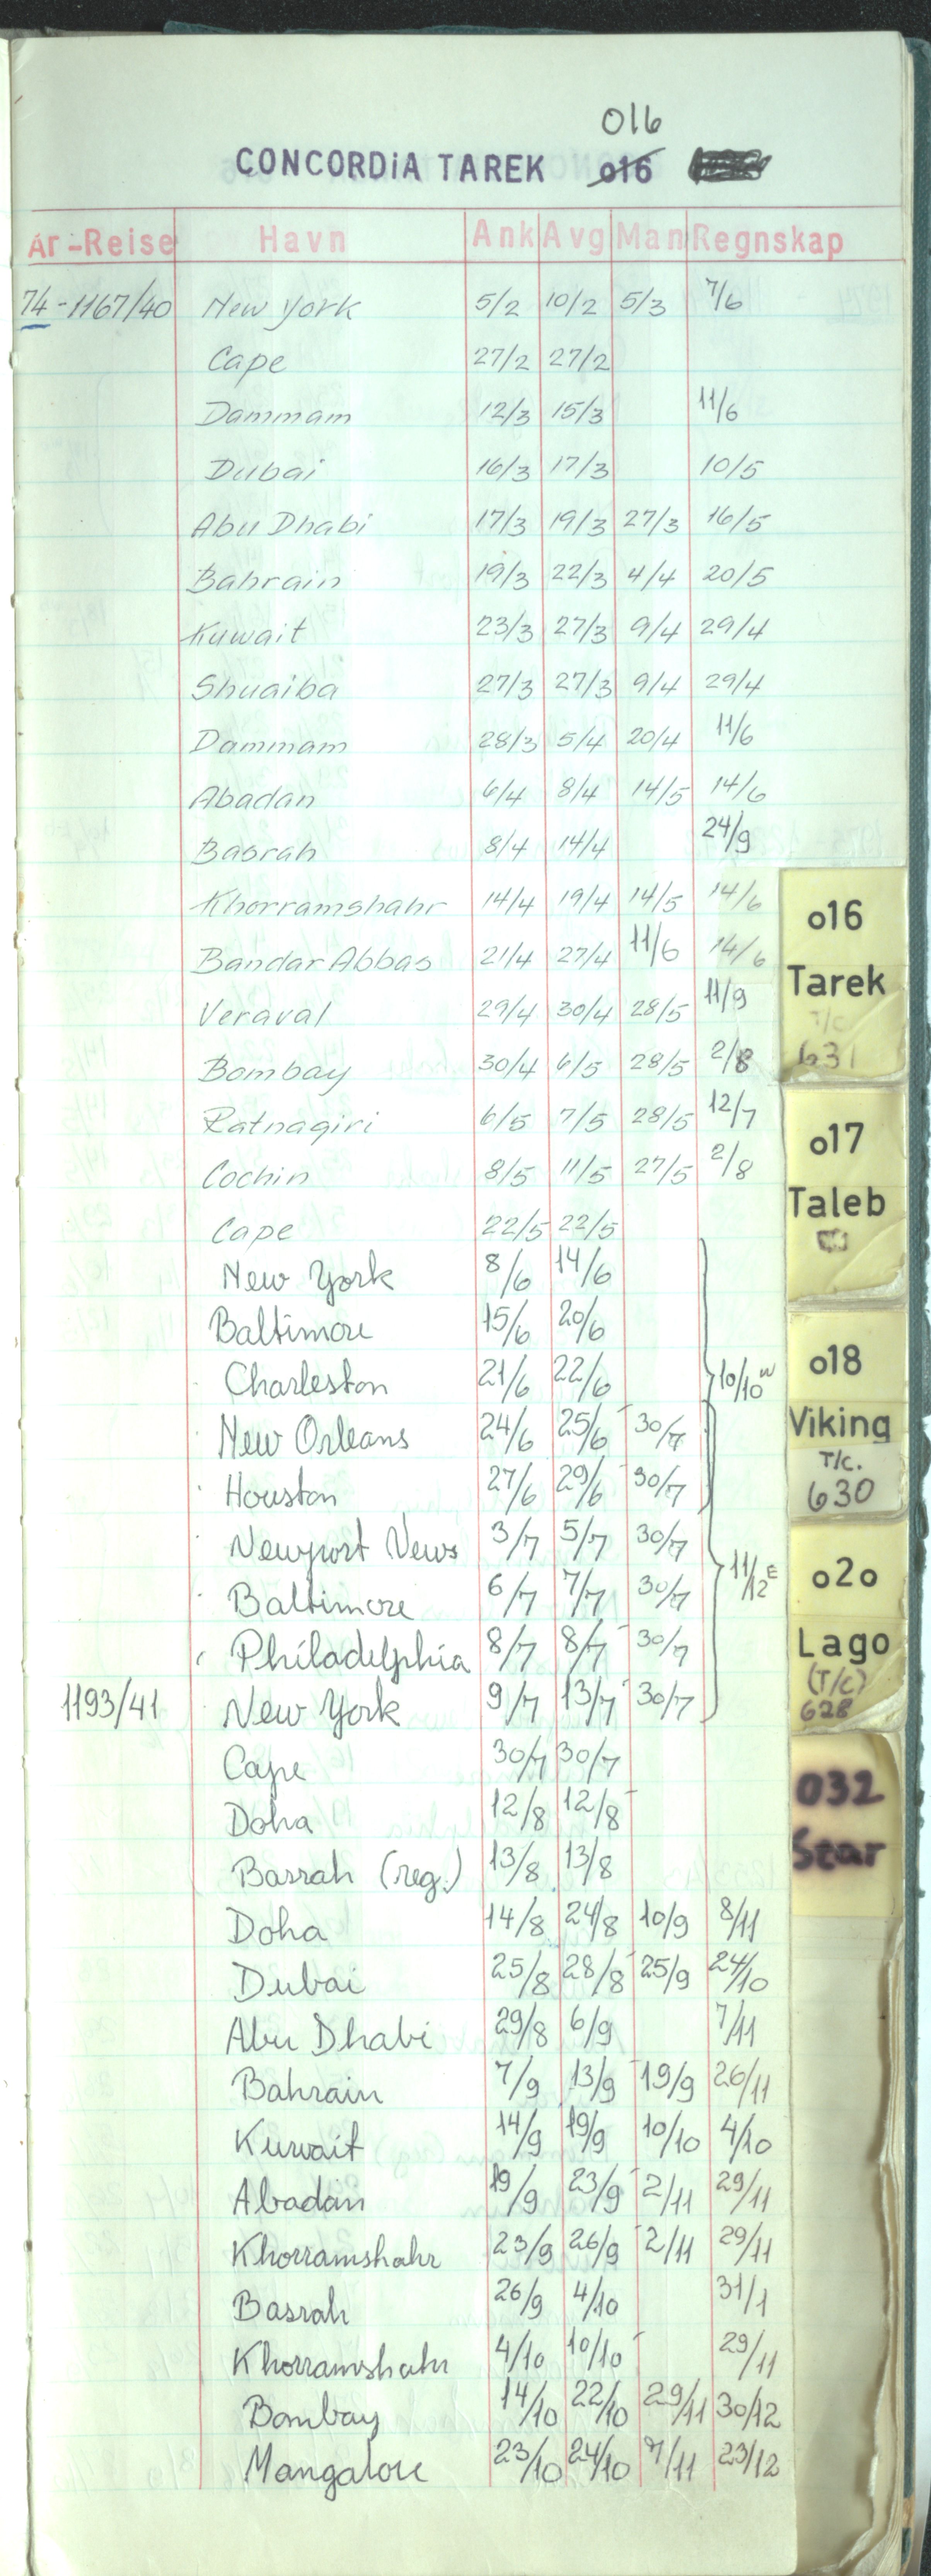 016
CONCORDiA TAREK o16
Ar-Reise Havn Ank Avg Man Regnskap
74-1167/40 New York 5/2 10/2 5/3 7/6
Cape 27/2 27/2
Dammam 12/3 15/3 11/6
Dubai 16/3 17/3 10/5
Abu Dhabi 17/3 19/3 27/3 16/5
Bahrain 19/3 22/3 4/4 20/5
Kuwait 23/3 27/3 9/4 29/4
Shuaiba 27/3 27/3 9/4 29/4
Dammam 28/3 5/4 20/4 11/6
Abadan 6/4 8/4 14/5 14/6
Basrah 8/4 14/4 24/9
Khorramshahr 14/4 19/4 14/5 14/6
Bandar Abbas 21/4 27/4 11/6 14/6
Veraval 29/4 30/4 28/5 11/9
Bombay 30/4 6/5 28/5 2/8
Ratnagiri 6/5 7/5 28/5 12/7
Cochin 8/5 11/5 27/5 2/8
Cape 22/5 22/5
New York 8/6 14/6
Baltimore 15/6 20/6
Charleston 21/6 22/6 10/10 W
New Orleans 24/6 25/6 30/7
Houston 27/6 29/6 30/7
Newport News 3/7 5/7 30/7
Baltimore 6/7 7/7 30/7 11/12 E
Philadelphia 8/7 8/7 30/7
1193/41 New York 9/7 13/7 30/7
Cape 30/7 30/7
Doha 12/8 12/8
Basrah (reg.) 13/8 13/8
Doha 14/8 24/8 10/9 8/11
Dubai 25/8 28/8 25/9 24/10
Abu Dhabi 29/8 6/9 7/11
Bahrain 7/9 13/9 19/9 26/11
Kuwait 14/9 19/9 10/10 4/10
Abadan 19/9 23/9 2/11 29/11
Khorramshahr 23/9 26/9 2/11 29/11
Basrah 26/9 4/10 31/1
Khorramshahr 4/10 10/10 29/11
Bombay 14/10 22/10 29/11 30/12
Mangalore 23/10 24/10 7/11 23/12
o16
Tarek
T/C
631
o17
Taleb
o18
Viking
T/C.
630
o2o
Lago
(T/C)
628
032
Star